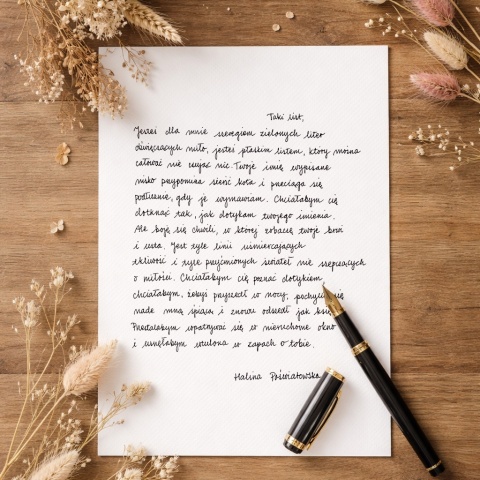 Taki list,
Jesteś dla mnie szeregiem zielonych liter
dźwięczących miło, jesteś płaskim listem, który można
całować nie czując nic. Twoje imię wypisane
nisko przypomina sierść kota i przeciąga się
posłusznie, gdy je wymawiam. Chciałabym cię
dotknąć tak, jak dotykam twojego imienia.
Ale boję się chwili, w której zobaczę twoje brwi
i usta. Jest tyle linii uśmiercających
tkliwość i tyle przyćmionych świateł nie szepczących
o miłości. Chciałabym cię poznać dotykiem,
chciałabym, żebyś przyszedł w nocy, pochylił się
nade mną śpiącą i znowu odszedł jak
Przestałabym wpatrywać się w nieruchome okno
i usnęłabym wtulona w zapach o tobie.
Halina Poświatowska